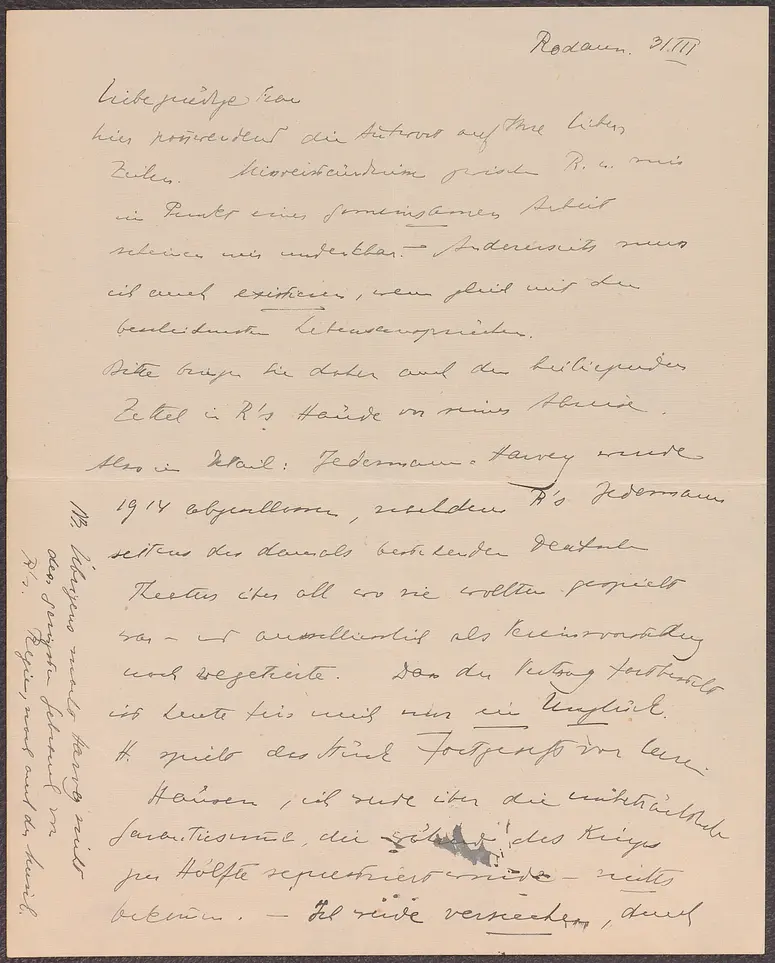 Rodaun. 31. III
Liebe gnädige Frau
hier postwendend die Antwort auf Ihre lieben
Zeilen. Missverständnisse zwischen R. u. mir
im Punkt einer gemeinsamen Arbeit
scheinen mir undenkbar. – Andererseits muss
ich auch existieren, wenn gleich mit den
bescheidensten Lebensansprüchen.
Bitte bringen Sie daher auch den beiliegenden
Zettel in R's Hände vor seiner Abreise.
Also im Detail: Jedermann-Harvey wurde
1914 abgeschlossen, nachdem R's Jedermann
seitens des damals bestehenden Deutschen
Theaters über all wo sie wollten gespielt
war – u ausschliesslich als Vereinsvorstellung
noch vegetierte. Dass der Vertrag fortbesteht
ist heute für mich nur ein Unglück.
H. spielt das Stück fortgesetzt vor leeren
Häusern, ich werde über die
Garantiesumme, die während des Kriegs
zur Hälfte sequestriert wurde – nichts
bekommen. – Ich würde versuchen, durch
NB. Übrigens macht Harvey nicht
den geringsten Gebrauch von
R's. Regie, noch auch der Musik.